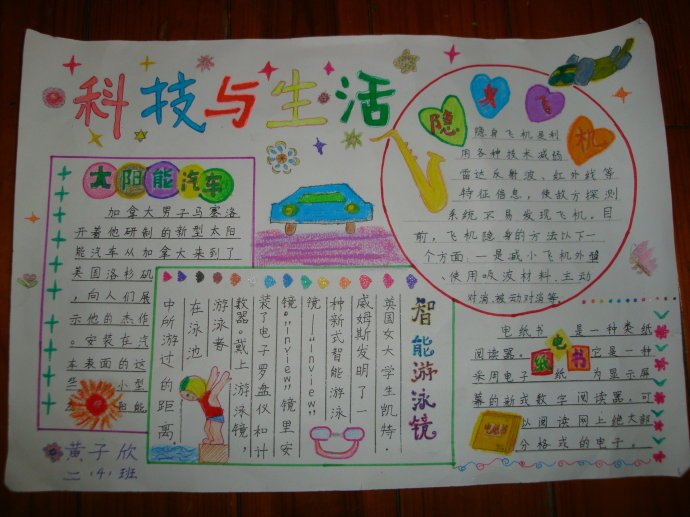 科技与生活
太阳能汽车
加拿大男子马塞洛
开着他研制的新型太阳
能汽车从加拿大来到了
美国洛杉矶
，向人们展
示他的杰作
。安装在汽
车表面的这
些 小型
阳能
隐身飞机
隐身飞机是利
用各种技术减弱
雷达反射波、红外线等
特征信息，使敌方探测
系统不易发现飞机。目
前，飞机隐身的方法以下一
个方面：一是减小飞机外
、使用吸波材料.主动
对消.被动对消等。
智能游泳镜
英国女大学生凯特·
威姆斯发明了一
种新式智能游泳
镜—“inview”
镜。“inview”镜里安
装了电子罗盘仪和计
数器。戴上游泳镜，
游泳者
在泳池
中所游过的距离
电纸书
电纸书 是一种类纸
阅读器。 它是一种
采用电子 纸 为显示屏
幕的新式数字阅读器，可
以阅读网上绝大部
分格式的电子。
电纸书
黄子欣
二（4）班